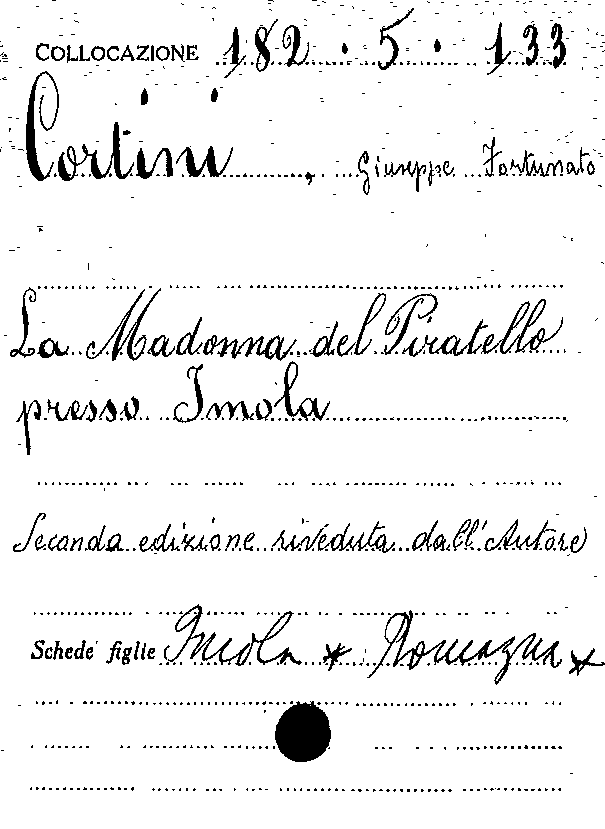 COLLOCAZIONE 182 . 5 . 133
Cortini, Giuseppe Fortunato
La Madonna del Piratello
presso Imola
Seconda edizione riveduta dall'Autore
Schede figlie Imola * Romagna *